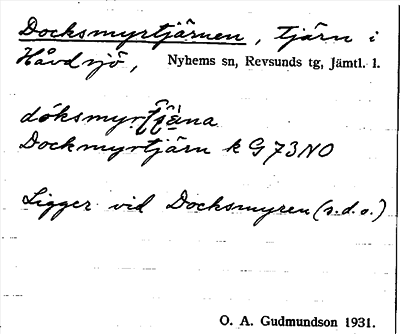 Docksmyrtjärnen, tjärn i
Håvdsjö, Nyhems sn, Revsunds tg, Jämtl. l.
Dockmyrtjärn k G73NO
Ligger vid Docksmyren (s.d.o.)
O. A. Gudmundson 1931.